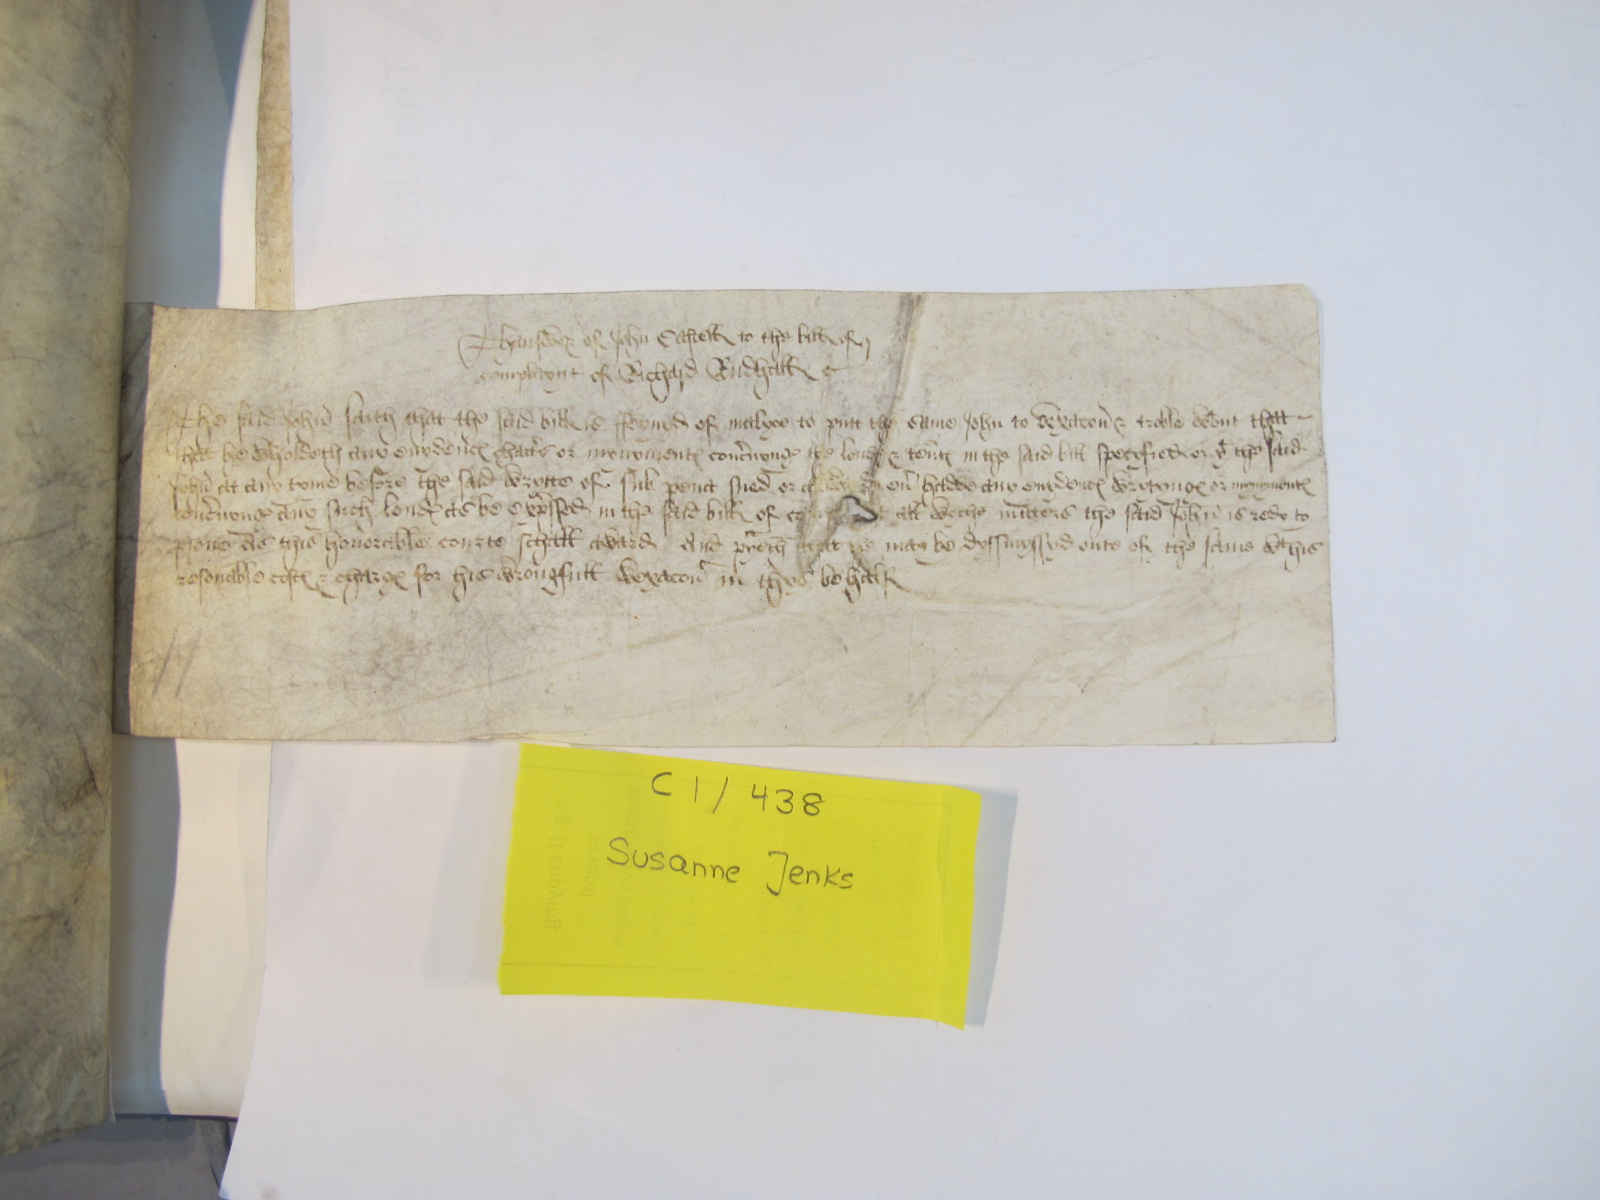 Thanswer of John Castell to the bill of
complaynt of Richard Rudhall
The said John saith that the said bill is ffeyned of malyce to put the same John to vexacon & troble wout that
that he wtholdeth any evydences chartrs or munymentes concernyng the londes & tentes in the said bill specyfied or yt the said
John at any tyme before the said wrytte of sub pena sued or had any evydences wrytynges or munymentes
concernyng any such londes as be expressed in the said bill of all weche maters the said John is redy to
prove as this honorable courte schall award And prayeth that he may be dyssmyssyd oute of the same wt his
resonable costes & charges for his wrongfull vexacon in thys behalf
C 1 / 438
Susanne Jenks